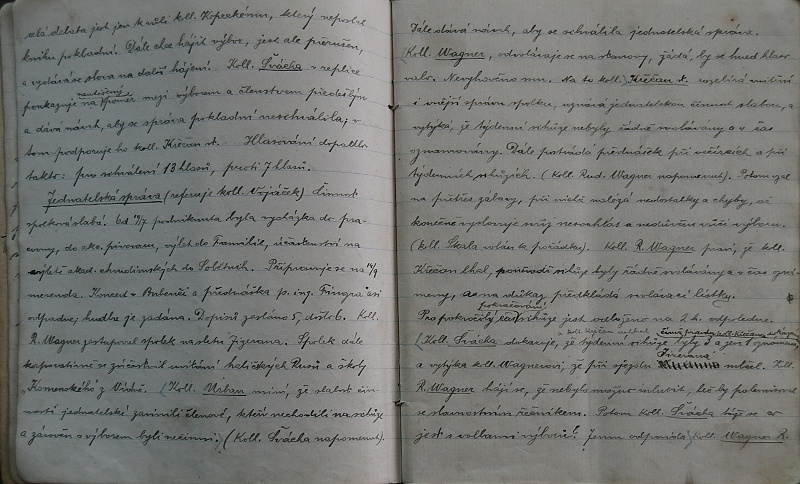 celá debata jest jen k vůli koll. Kopeckému, který nepodal
knihu pokladní. Dále chce hájit výbor, jest ale přerušen,
a vzdává se slova na další hájení. Koll. Švácha v replice
poukazuje na poměr mezi výborem a členstvem
a dává návrh, aby se správa pokladní neschválila; v
tom podporuje ho koll. Křičan st. Hlasování dopadlo
takto: pro schválení 13 hlasů, proti 7 hlasů.
Jednatelská správa (referuje koll. Vojáček) Činnost
spolková slabá. Od podniknuta byla vycházka do
do pivovaru, výlet do účastenství na
výletě akad. chrudimských do Prřipravuje se na 14/9
merenda. Koncert v Bubenči a přednáška p. ing. asi
odpadne; hudba je zadána. Dopisů zasláno 5, došlo 6. Koll.
R. Wagner zastupoval spolek na sletu Jizerana. Spolek dále
korporativně se zúčastnil uvítání haličských Rusů a školy
„Komenského" z Vídně. (Koll. Urban míní, že slabost čin-
nosti jednatelské zavinili členové, kteří nechodili na schůze
a zároveň s výborem byli nečinní.) (Koll. Švácha napomenut).
Dále dává návrh, aby se schválila jednatelská správa.
(Koll. Wagner, odvolávaje se na stanovy, žádá, by se hned hlaso-
valo. Nevyhověno mu. Na to koll. Křičan st. rozebírá vnitřní
i vnější správu spolku, uznává jednatelskou činnost slabou, a
vytýká, že týdenní schůze nebyly řádně svolávány a v čas
oznamovány. Dále postrádá přednášek při večírcích a při
týdenních schůzích. (Koll. Rud. Wagner napomenut). Potom vzal
na přetřes zábavy, při nichž nalézá nedostatky a chyby, až
konečně vyslovuje svůj nesouhlas a nedůvěru vůči výboru.
(koll. Škala volán k pořádku). Koll. R. Wagner praví, že koll.
Křičan lhal, poněvadž schůze byly řádně svolávány a v čas ozná-
meny, a na důkaz předkládá svolávací lístky.
pokračování
Pro pokročilý čas schůze jest odloženo na 2 h. odpoledne.
(Koll. Švácha dokazuje, že týdenní schůze byly 3 a jen 1 oznámena,
Jizerana
a vytýká koll. Wagnerovi, že při sjezdu mlčel. Koll.
R. Wagner hájí se, že nebylo možno mluvit, leč by polemisoval
se slavnostním řečníkem. Potom koll. Švácha táže se co
jest s volbami výborů? Jemu odpovídá koll. Wagner R.